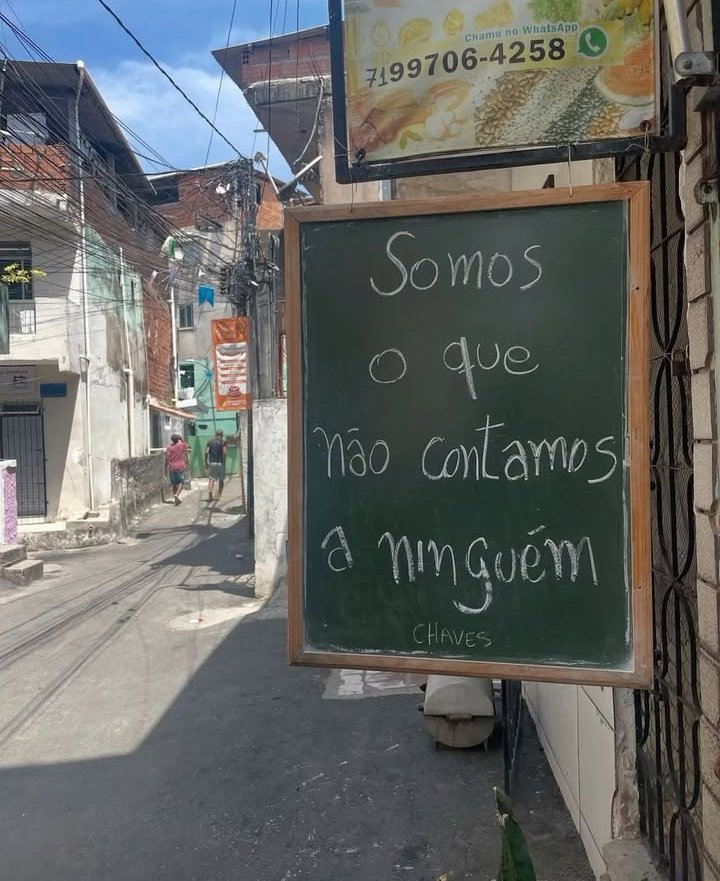 Chama no WhatsApp
71 99706-4258
Somos
o que
não contamos
a ninguém
CHAVES